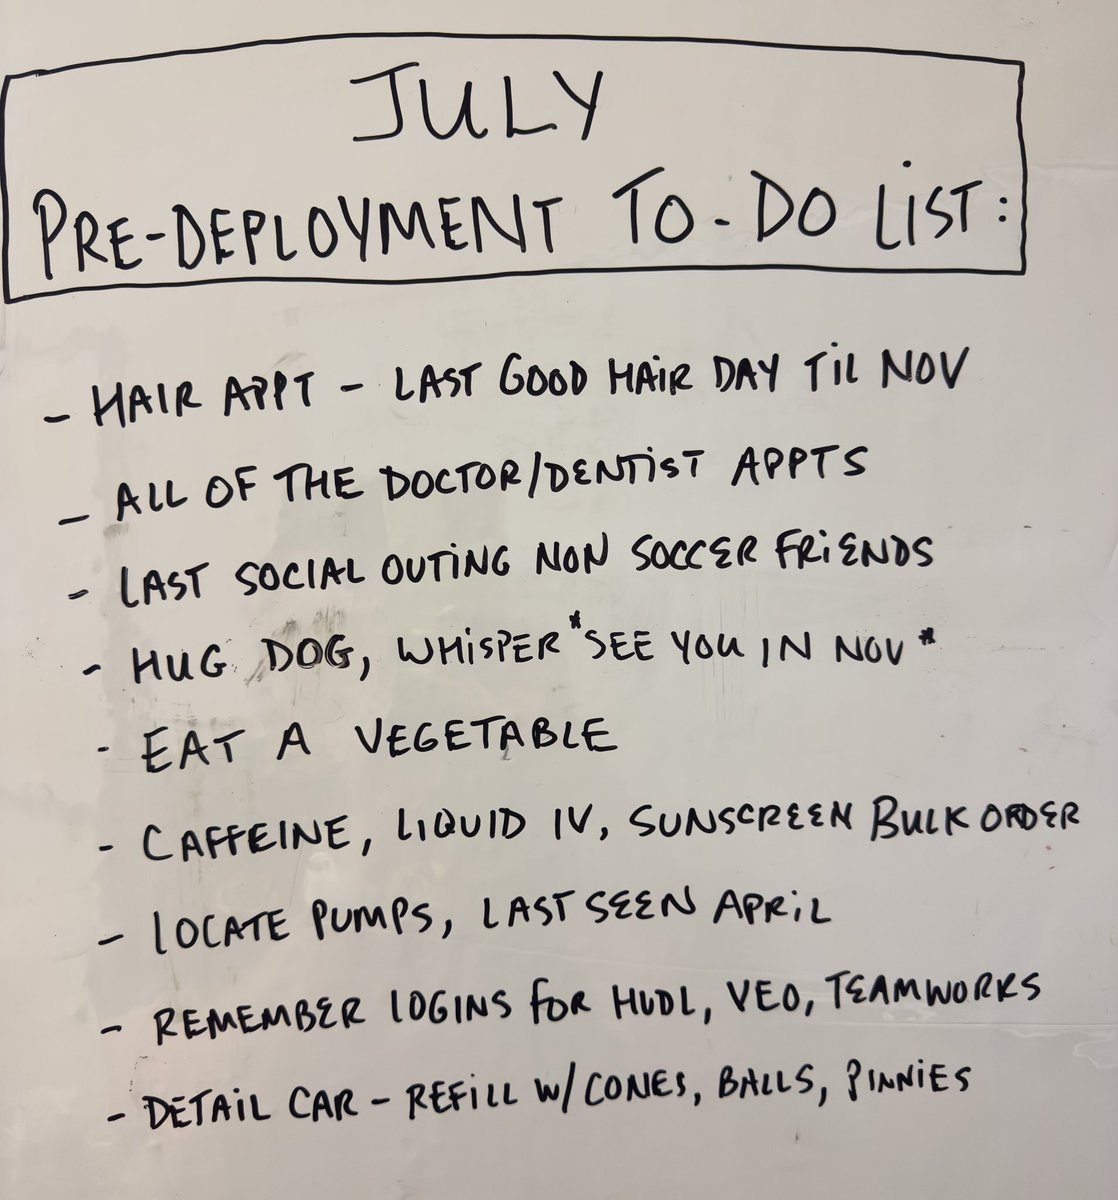 JULY
PRE-DEPLOYMENT TO-DO LIST:
- HAIR APPT - LAST GOOD HAIR DAY TIL NOV
- ALL OF THE DOCTOR/DENTIST APPTS
- LAST SOCIAL OUTING NON SOCCER FRIENDS
- HUG DOG, WHISPER *SEE YOU IN NOV*
- EAT A VEGETABLE
- CAFFEINE, LIQUID IV, SUNSCREEN BULK ORDER
- LOCATE PUMPS, LAST SEEN APRIL
- REMEMBER LOGINS FOR HUDL, VEO, TEAMWORKS
- DETAIL CAR - REFILL W/ CONES, BALLS, PINNIES